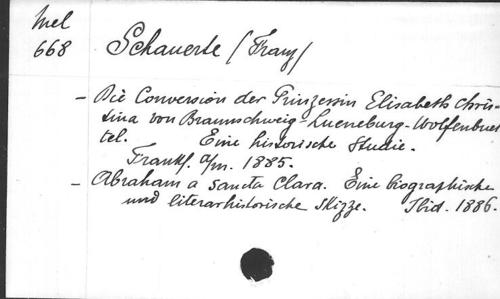 Mel
668
Schauerte /Franz/
– Die Conversion der Prinzessin Elisabeth Chris-
tina von Braunschweig-Lueneburg-Wolfenbuet
tel. Eine historische Studie.
Frankf. a/m. 1885.
– Abraham a Sancta Clara. Eine biographische
und literarhistorische Skizze. Ibid. 1886.